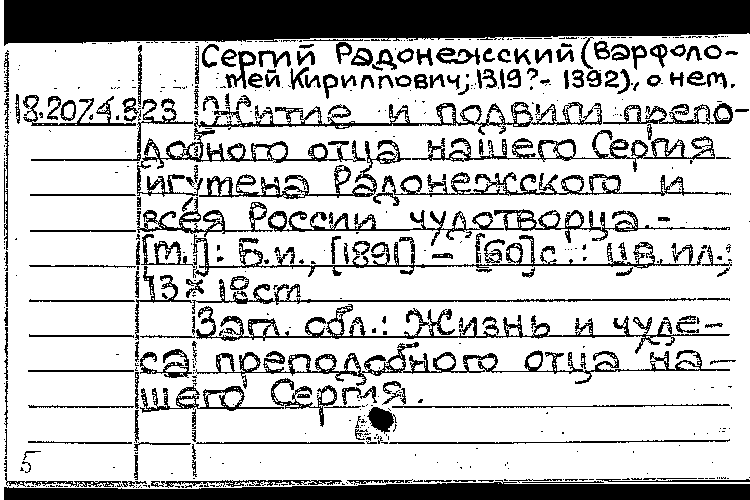 Сергий Радонежсский (Варфоло-
мей Кириллович; 1319?- 1392), о нем.
18.207.4.823 Житие и подвиги препо-
добного отца нашего Сергия
игумена Радонежсского и
всея России чудотворца.-
[М.]: Б.и., [1891]. - [60]с.: цв. ил.;
13 × 18 см.
Загл. обл.: Жизнь и чуде-
са преподобного отца на-
шего Сергия.
5